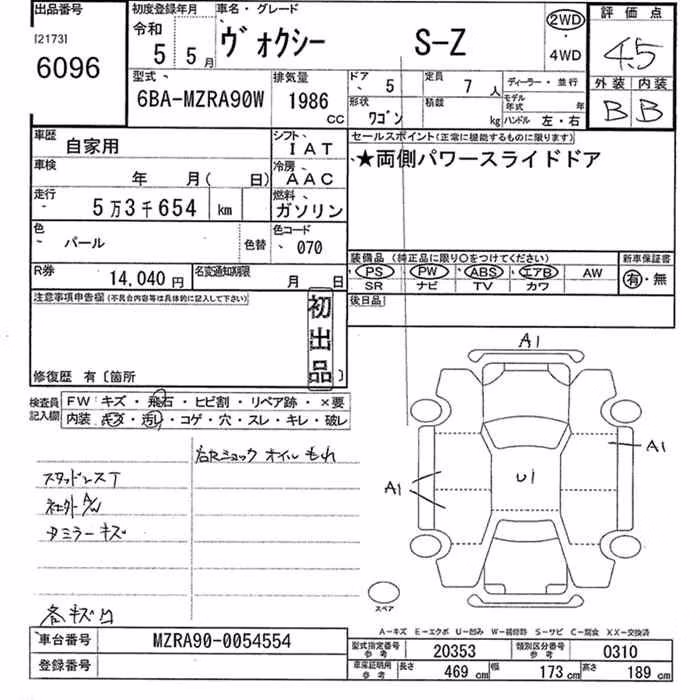 出品番号
[2173]
6096
初度登録年月
令和
5 5月
車名・グレード
ヴォクシー S-Z
2WD
・
4WD
評価点
4.5
外装 内装
B B
型式
6BA-MZRA90W
排気量
1986
CC
ドア 5
定員 7人
ディーラー・並行
形状 ワゴン
積載 kg
モデル年式 年
ハンドル 左・右
車歴 自家用
シフト IAT
車検 年 月( 日)
冷房 AAC
走行 5万3千654 km
燃料 ガソリン
色 パール
色替
色コード 070
R券 14,040円
名変通知期限 月 日
セールスポイント(正常に機能するものに限ります)
★両側パワースライドドア
装備品(純正品に限り○をつけてください)
PS PW ABS エアB AW
SR ナビ TV カワ
新車保証書
有・無
後日品
注意事項申告欄(不具合内容等は具体的に記入して下さい)
初出品
修復歴 有〔箇所 〕
検査員記入欄
FW キズ・飛石・ヒビ割・リペア跡・×要
内装 キズ・汚れ・コゲ・穴・スレ・キレ・破レ
右Rショック オイルもれ
スタッドレスT
社外A/W
ミラーキズ
各キズ凹
A1
A1
A1
U1
スペア
A-キズ E-エクボ U-凹み W-補修跡 S-サビ C-腐食 XX-交換済
車台番号 MZRA90-0054554
登録番号
型式指定番号 参考 20353
類別区分番号 参考 0310
車庫証明用 参考 長さ 469cm 幅 173cm 高さ 189cm